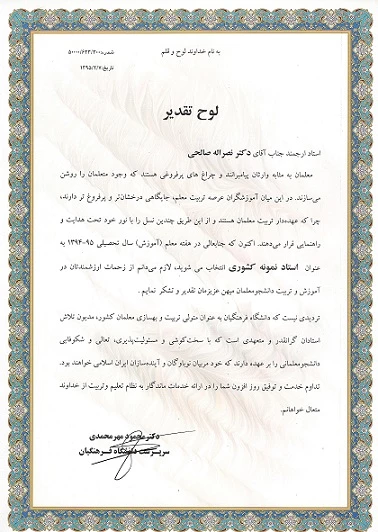 به نام خداوند لوح و قلم
شماره: ۵۰۰۰۰/۶۴۳/۳۰۰
تاریخ: ۱۳۹۵/۲/۷
لوح تقدیر
استاد ارجمند جناب آقای دکتر نصراله صالحی
معلمان به مثابه وارثان پیامبرانند و چراغ های پرفروغی هستند که وجود متعلمان را روشن
می‌سازند. در این میان آموزشگران عرصه تربیت معلم، جایگاهی درخشان‌تر و پرفروغ تر دارند،
چرا که عهده‌دار تربیت معلمان هستند و از این طریق چندین نسل را با نور خود تحت هدایت و
راهنمایی قرار می‌دهند. اکنون که جنابعالی در هفته معلم (آموزش) سال تحصیلی ۹۵-۱۳۹۴ به
عنوان استاد نمونه کشوری انتخاب می شوید، لازم می‌دانم از زحمات ارزشمندتان در
آموزش و تربیت دانشجومعلمان میهن عزیزمان تقدیر و تشکر نمایم.
تردیدی نیست که دانشگاه فرهنگیان به عنوان متولی تربیت و بهسازی معلمان کشور، مدیون تلاش
استادان گرانقدر و متعهدی است که با سخت‌کوشی و مسئولیت‌پذیری، تعالی و شکوفایی
دانشجومعلمانی را بر عهده دارند که خود مربیان نوباوگان و آینده‌سازان ایران اسلامی خواهند بود.
تداوم خدمت و توفیق روز افزون شما را در ارائه خدمات ماندگار به نظام تعلیم و تربیت از خداوند
متعال خواهانم.
دکتر محمود مهرمحمدی
سرپرست دانشگاه فرهنگیان